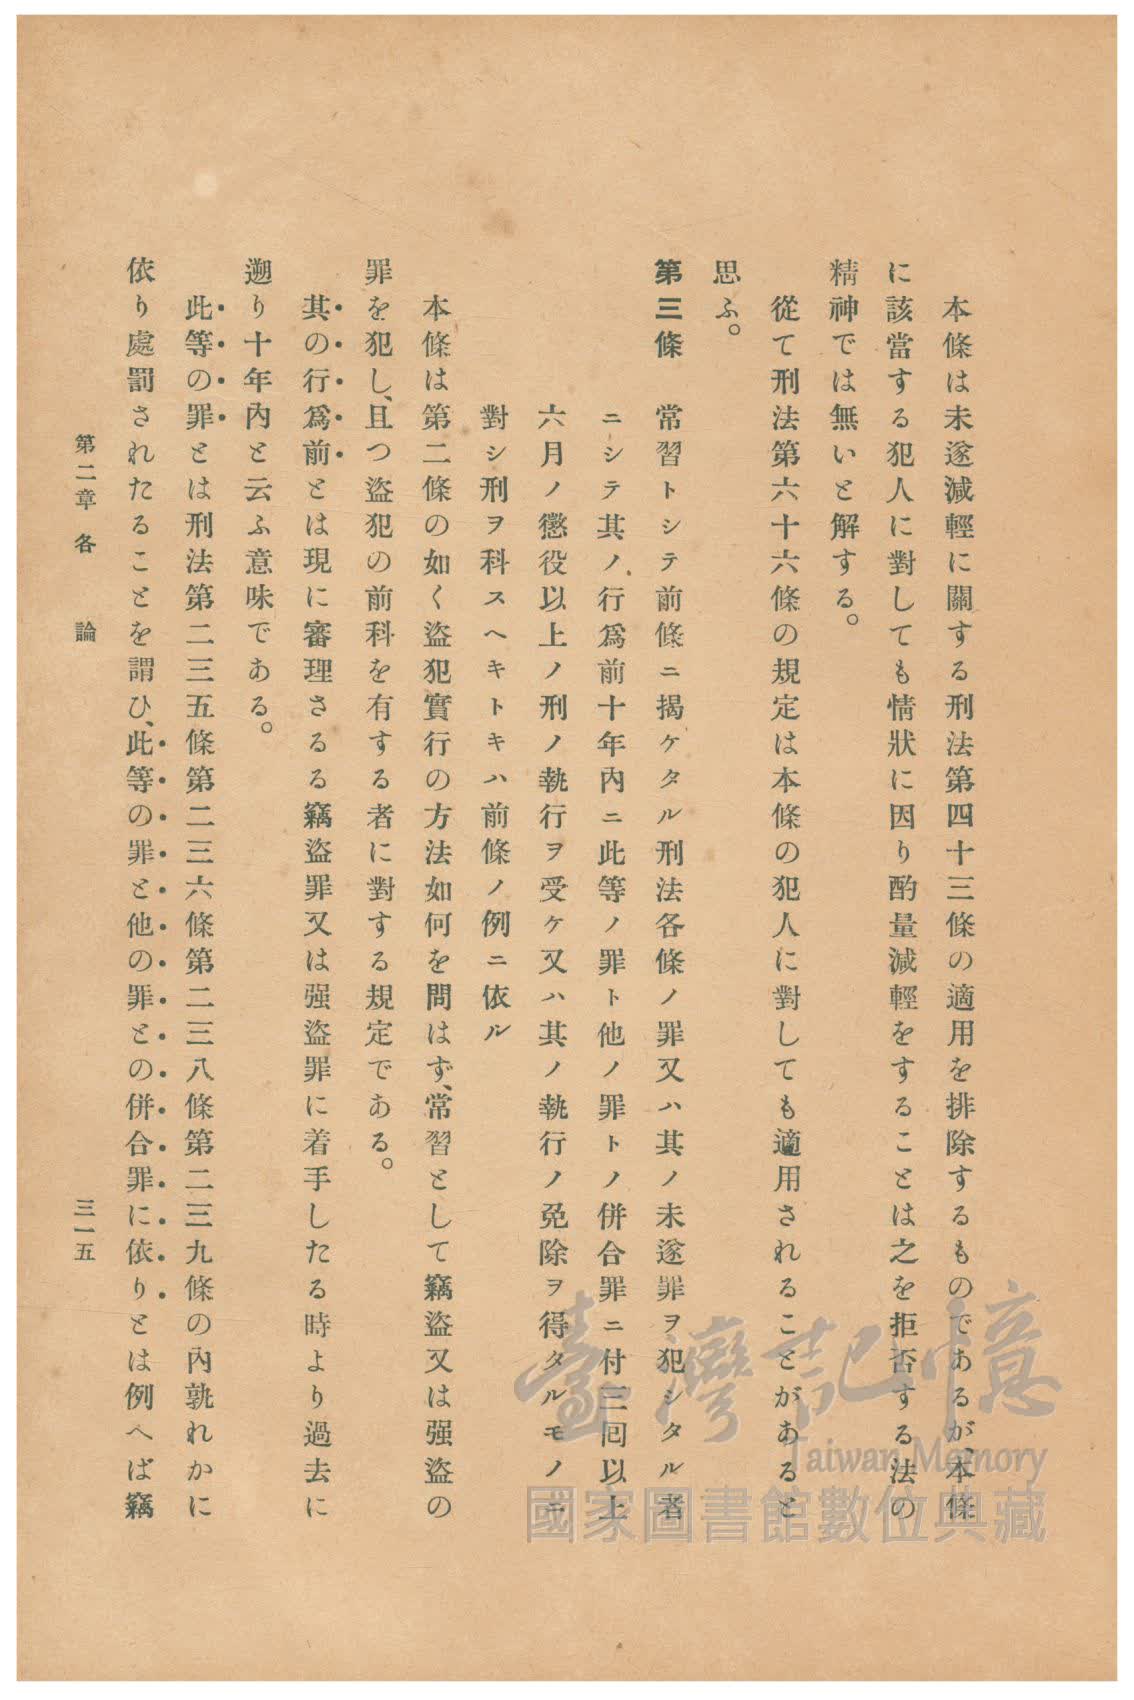 本條は未遂減輕に關する刑法第四十三條の適用を排除するものであるが、本條
に該當する犯人に對しても情狀に因り酌量減輕をすることは之を拒否する法の
精神では無いと解する。
從て刑法第六十六條の規定は本條の犯人に對しても適用されることがあると
思ふ。
第三條 常習トシテ前條ニ揭ケタル刑法各條ノ罪又ハ其ノ未遂罪ヲ犯シタル者
ニシテ其ノ行爲前十年內ニ此等ノ罪ト他ノ罪トノ併合罪ニ付三囘以上
六月ノ懲役以上ノ刑ノ執行ヲ受ケ又ハ其ノ執行ノ免除ヲ得タルモノニ
對シ刑ヲ科スヘキトキハ前條ノ例ニ依ル
本條は第二條の如く盜犯實行の方法如何を問はず、常習として竊盜又は强盜の
罪を犯し、且つ盜犯の前科を有する者に對する規定である。
其の行爲前とは現に審理さるる竊盜罪又は强盜罪に着手したる時より過去に
遡り十年內と云ふ意味である。
此等の罪とは刑法第二三五條第二三六條第二三八條第二三九條の內孰れかに
依り處罰されたることを謂ひ、此等の罪と他の罪との併合罪に依りとは例へば竊
第二章 各論
三一五
臺灣記憶
Taiwan Memory
國家圖書館數位典藏